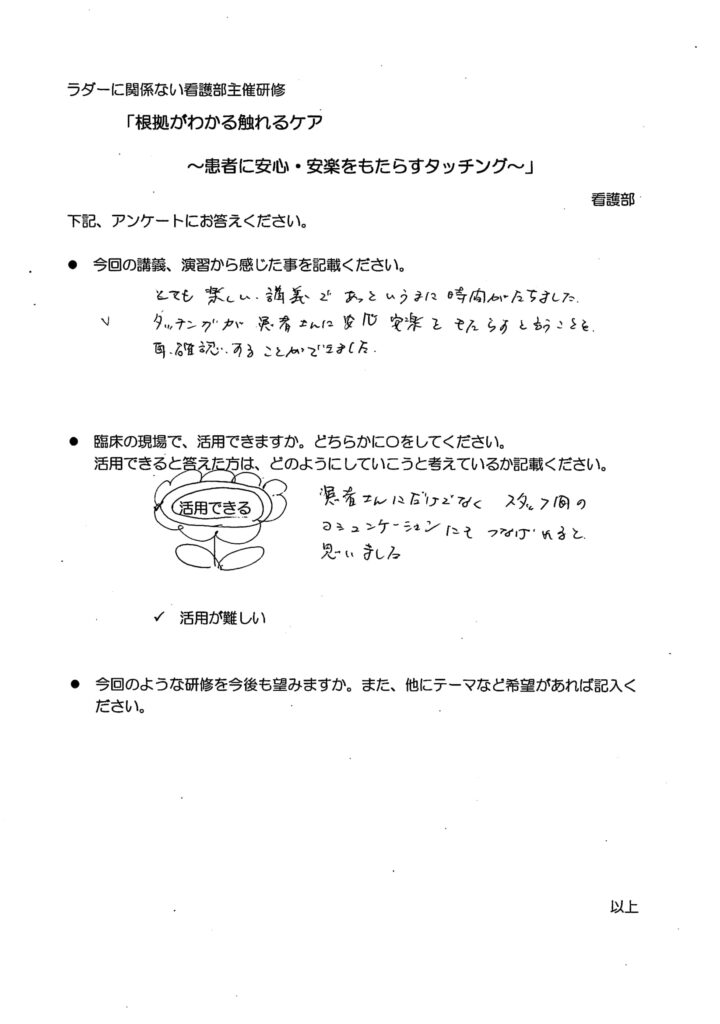 ラダーに関係ない看護部主催研修
「根拠がわかる触れるケア
～患者に安心・安楽をもたらすタッチング～」
看護部
下記、アンケートにお答えください。
● 今回の講義、演習から感じた事を記載ください。
とても楽しい講義であっというまに時間がたちました。
✓ タッチングが患者さんに安心安楽をもたらすということを
再確認することができました。
● 臨床の現場で、活用できますか。どちらかに〇をしてください。
活用できると答えた方は、どのようにしていこうと考えているか記載ください。
✓ 活用できる
患者さんにだけでなく スタッフ間の
コミュニケーションにも つなげれると
思いました
✓ 活用が難しい
● 今回のような研修を今後も望みますか。また、他にテーマなど希望があれば記入く
ださい。
以上